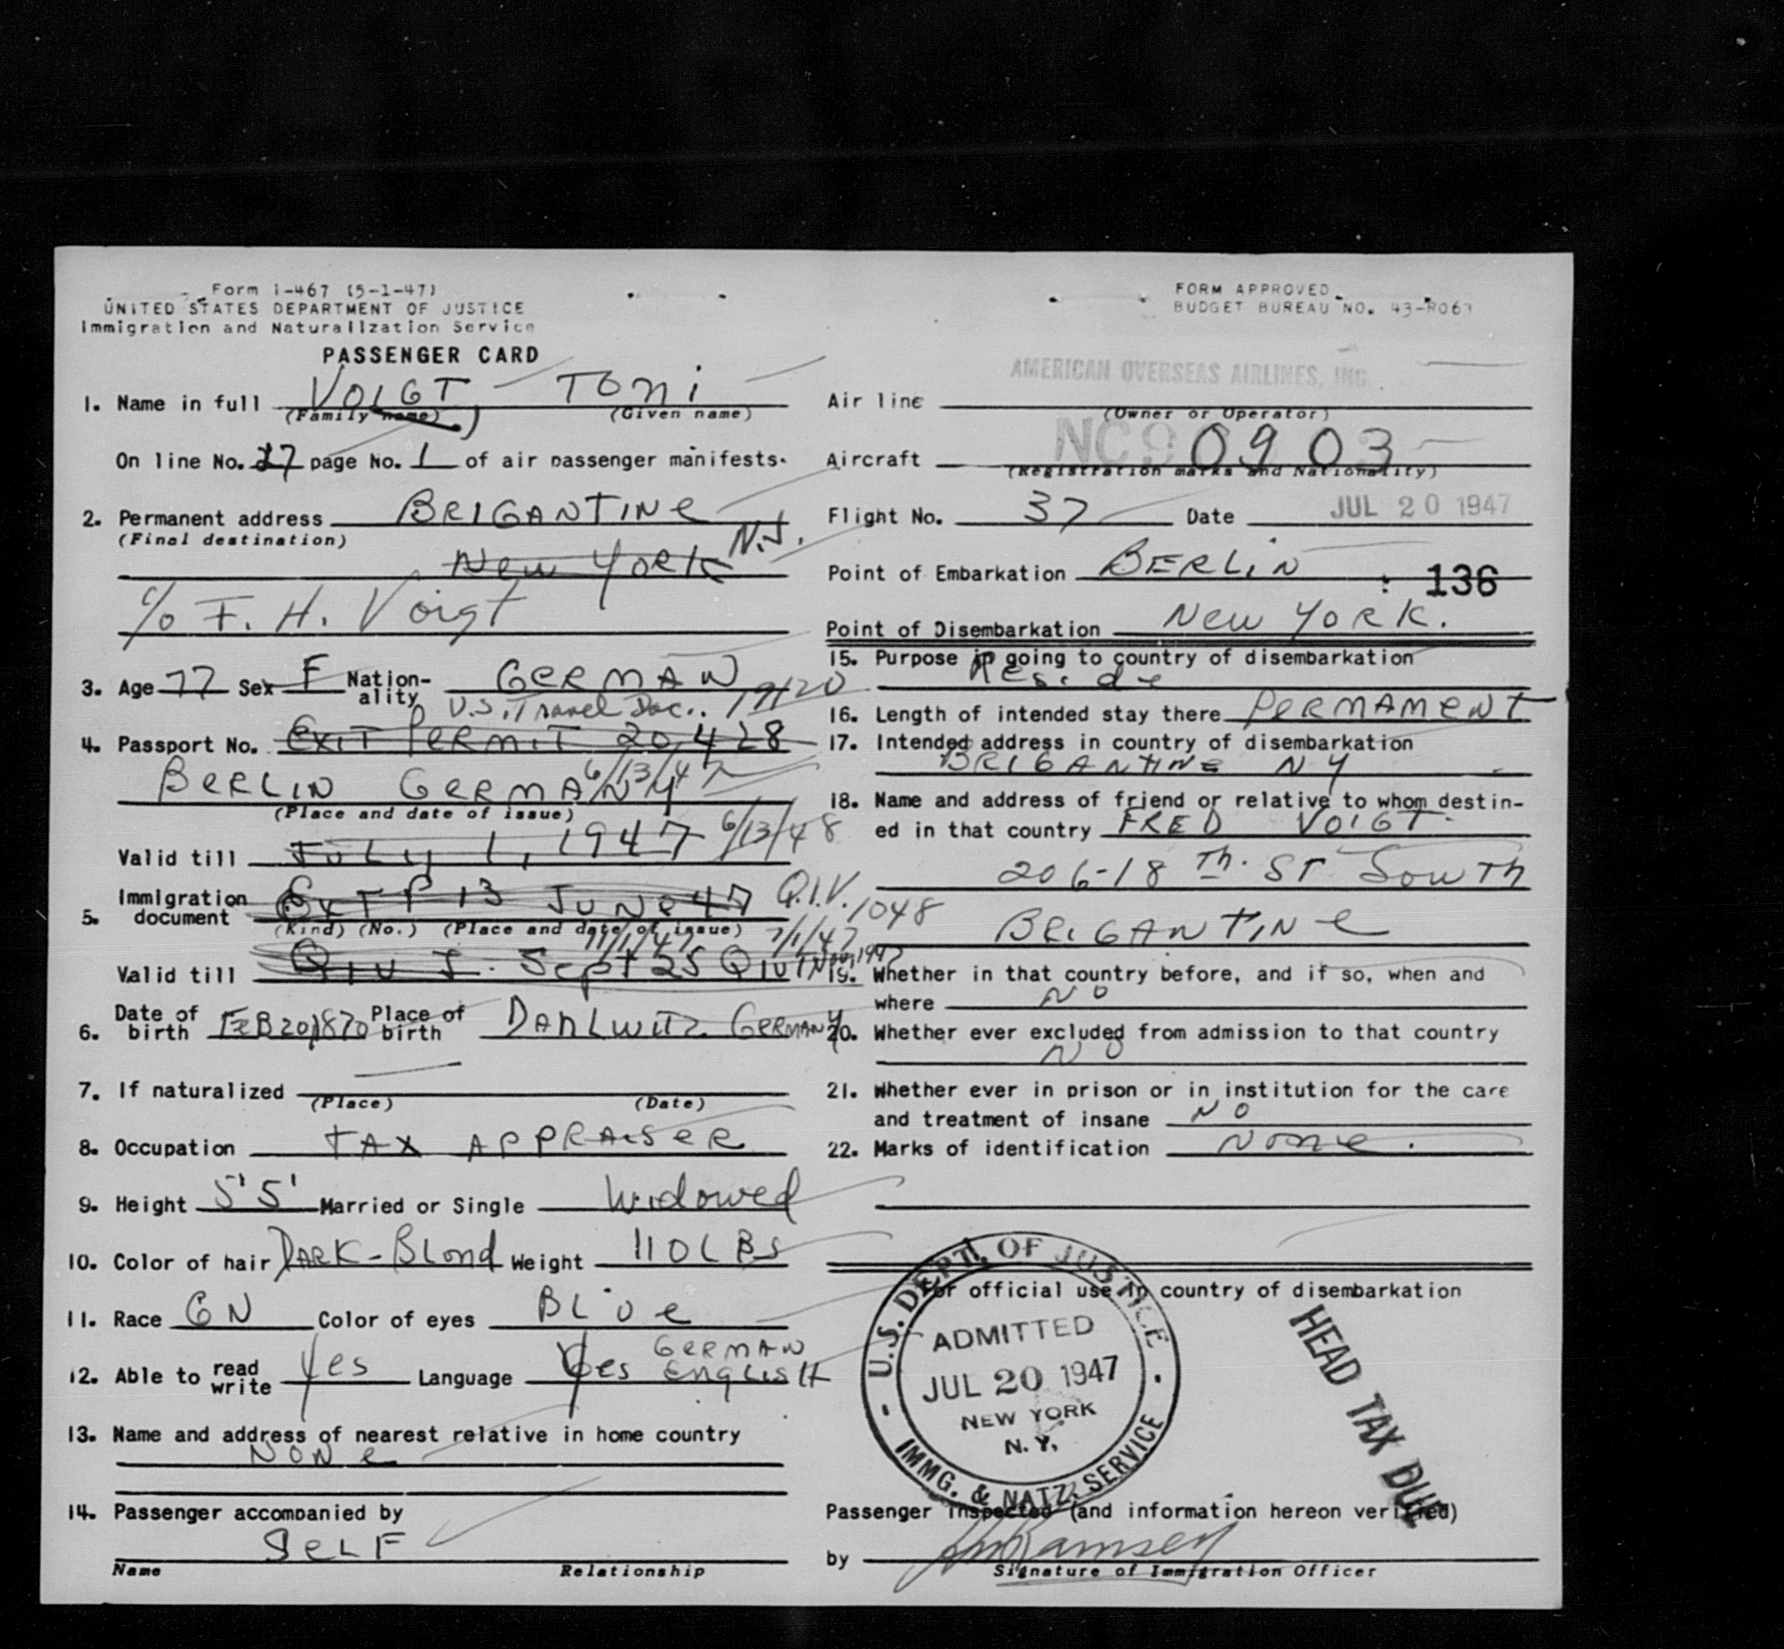 Form I-467 (5-1-47)
UNITED STATES DEPARTMENT OF JUSTICE
Immigration and Naturalization Service
FORM APPROVED
BUDGET BUREAU NO. 43-R067
PASSENGER CARD
1. Name in full VOIGT TONI
(Family name) (Given name)
On line No. 27 page No. 1 of air passenger manifests.
2. Permanent address BRIGANTINE
(Final destination)
N.J.
New YORK
c/o F. H. Voigt
3. Age 77 Sex F Nation-ality GERMAN
U.S. Travel Doc.
4. Passport No. EXIT PERMIT 20,428
BERLIN GERMANY 6/13/47
(Place and date of issue)
Valid till JULY 1, 1947 6/13/48
5. Immigration document EXT P 13 JUNE 47 Q.I.V. 1048
(Kind) (No.) (Place and date of issue)
11/1/47 7/1/47
Valid till Sept 25
6. Date of birth FEB 20 1870 Place of birth DAHLWITZ GERMANY
7. If naturalized
(Place) (Date)
8. Occupation TAX APPRAISER
9. Height 5'5' Married or Single Widowed
10. Color of hair DARK-BLOND Weight 110 LBS
11. Race GN Color of eyes BLUE
12. Able to read write Yes Language Yes GERMAN ENGLISH
13. Name and address of nearest relative in home country
NONE
14. Passenger accompanied by
SELF
Name Relationship
AMERICAN OVERSEAS AIRLINES, INC.
Air line
(Owner or Operator)
Aircraft NC90903
(Registration marks and Nationality)
Flight No. 37 Date JUL 20 1947
Point of Embarkation BERLIN
: 136
Point of Disembarkation New YORK.
15. Purpose in going to country of disembarkation
Reside
16. Length of intended stay there PERMAMENT
17. Intended address in country of disembarkation
BRIGANTINE NY
18. Name and address of friend or relative to whom destin-
ed in that country FRED VOIGT
206-18 Th. ST SOUTH
BRIGANTINE
19. Whether in that country before, and if so, when and
where NO
20. Whether ever excluded from admission to that country
NO
21. Whether ever in prison or in institution for the care
and treatment of insane NO
22. Marks of identification None.
For official use in country of disembarkation
U.S. DEPT. OF JUSTICE
ADMITTED
JUL 20 1947
NEW YORK
N. Y.
IMMG. & NATZ. SERVICE
HEAD TAX DUE
Passenger inspected (and information hereon verified)
by Ramsey
Signature of Immigration Officer